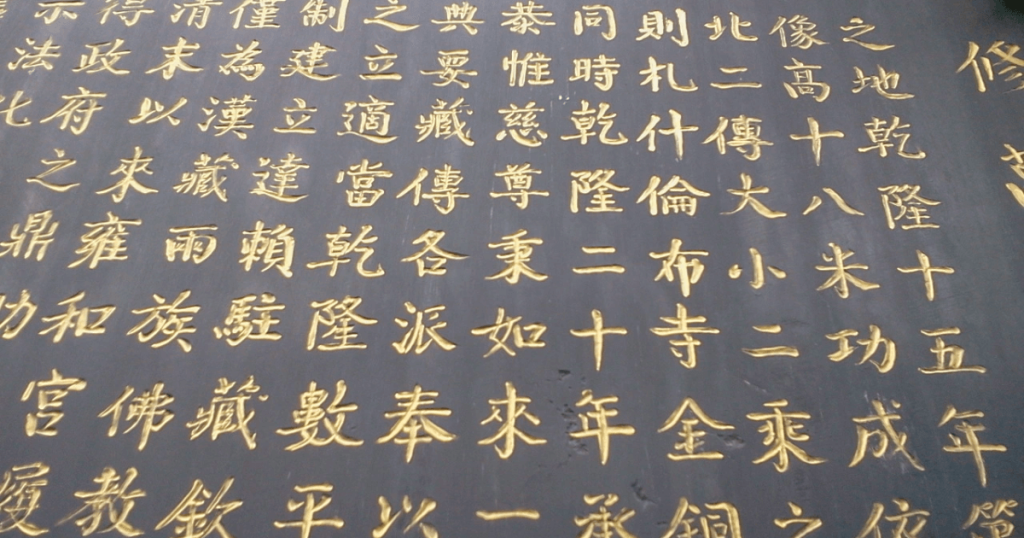 修
之地乾隆十五年第
像高十八米功成依
北二傳大小二乘之
則札什倫布寺金銅
同時乾隆二十年承
恭惟慈尊秉如來一
典要藏傳各派奉以
之立適當乾隆數平
制建立達賴駐藏欽
僅為漢藏兩族佛教
清末以來雍和宮履
得政府之鼎助
示法化